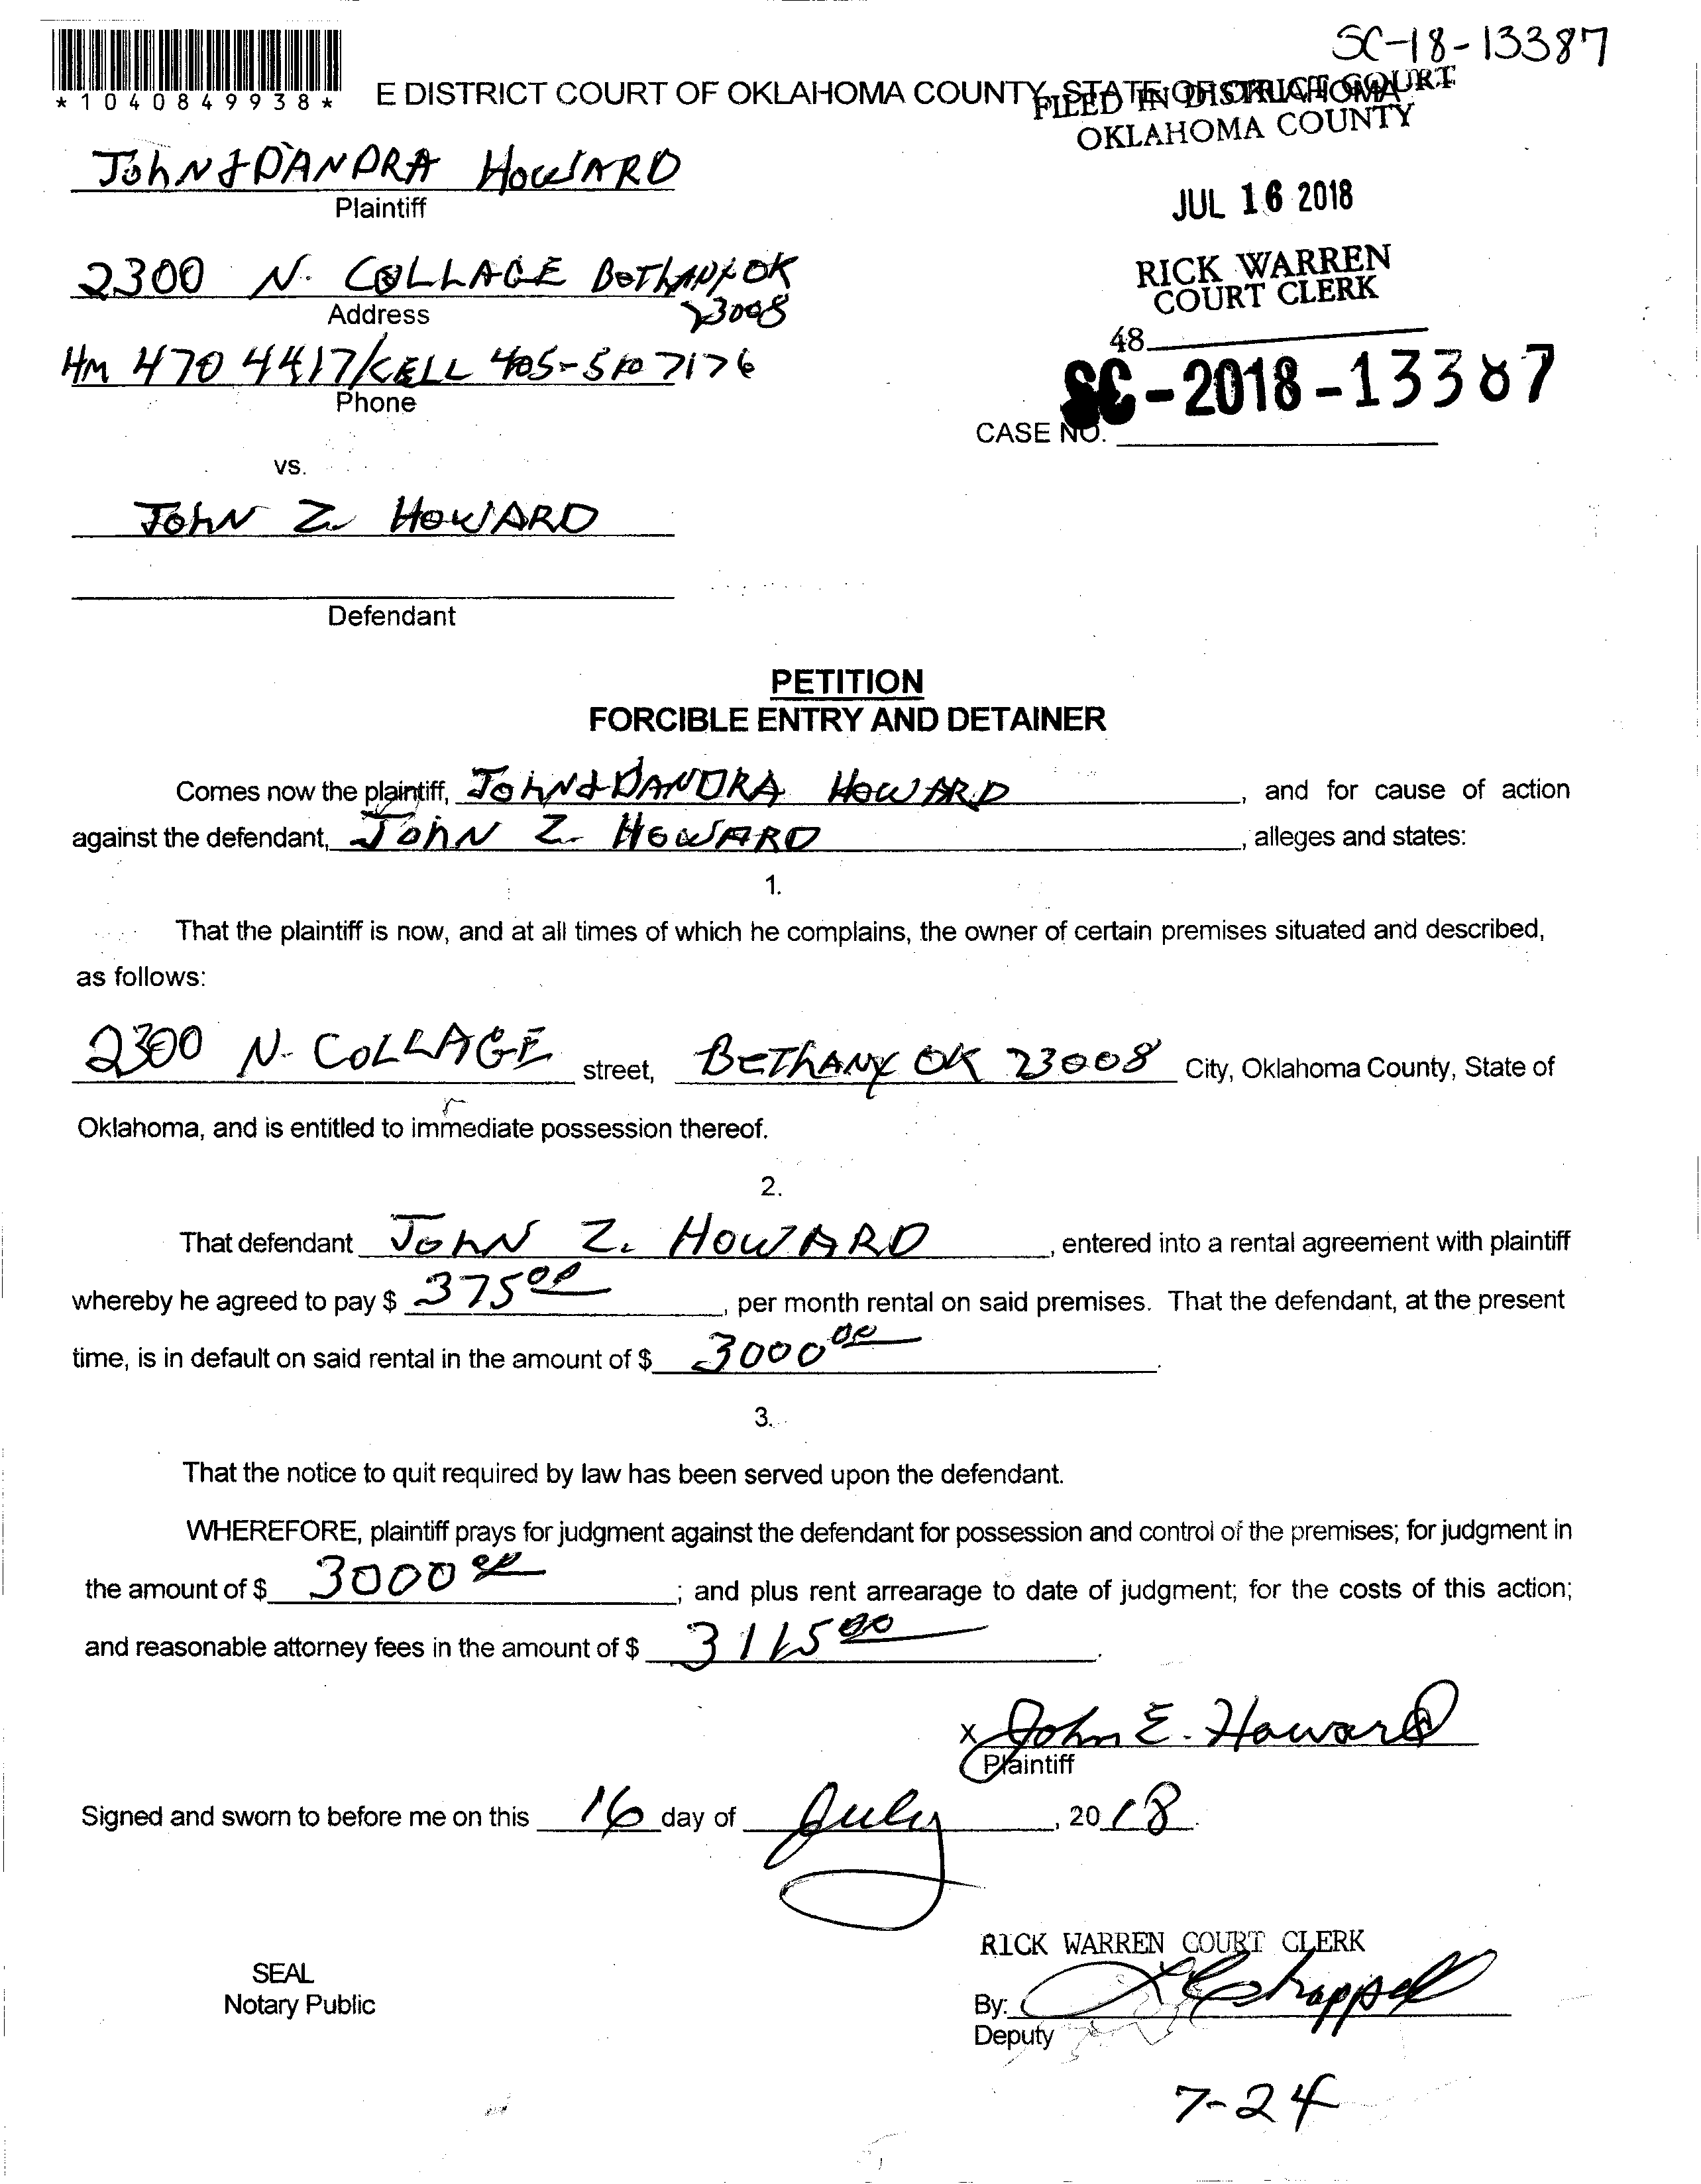 SC-18-13387
*1040849938*
E DISTRICT COURT OF OKLAHOMA COUNTY, STATE OF OKLAHOMA
FILED IN DISTRICT COURT
OKLAHOMA COUNTY
JOhN & DANDRA HOWARD
Plaintiff
JUL 16 2018
2300 N. COLLAGE BEThANY OK
23008
Address
RICK WARREN
COURT CLERK
48
Hm 470 4417/CELL 405-510 7176
Phone
SC-2018-13387
CASE NO.
vs.
JOhN Z. HOWARD
Defendant
PETITION
FORCIBLE ENTRY AND DETAINER
Comes now the plaintiff, JOhN & DANDRA HOWARD, and for cause of action
against the defendant, JOhN Z. HOWARD, alleges and states:
1.
That the plaintiff is now, and at all times of which he complains, the owner of certain premises situated and described,
as follows:
2300 N. COLLAGE street, BEThANY OK 23008 City, Oklahoma County, State of
Oklahoma, and is entitled to immediate possession thereof.
2.
That defendant JOhN Z. HOWARD, entered into a rental agreement with plaintiff
whereby he agreed to pay $ 375 00, per month rental on said premises. That the defendant, at the present
time, is in default on said rental in the amount of $ 3000 00.
3.
That the notice to quit required by law has been served upon the defendant.
WHEREFORE, plaintiff prays for judgment against the defendant for possession and control of the premises; for judgment in
the amount of $ 3000 00; and plus rent arrearage to date of judgment; for the costs of this action;
and reasonable attorney fees in the amount of $ 3115 00.
x John E. Howard
Plaintiff
Signed and sworn to before me on this 16 day of July, 2018.
RICK WARREN COURT CLERK
SEAL
Notary Public
By:
Deputy
7-24